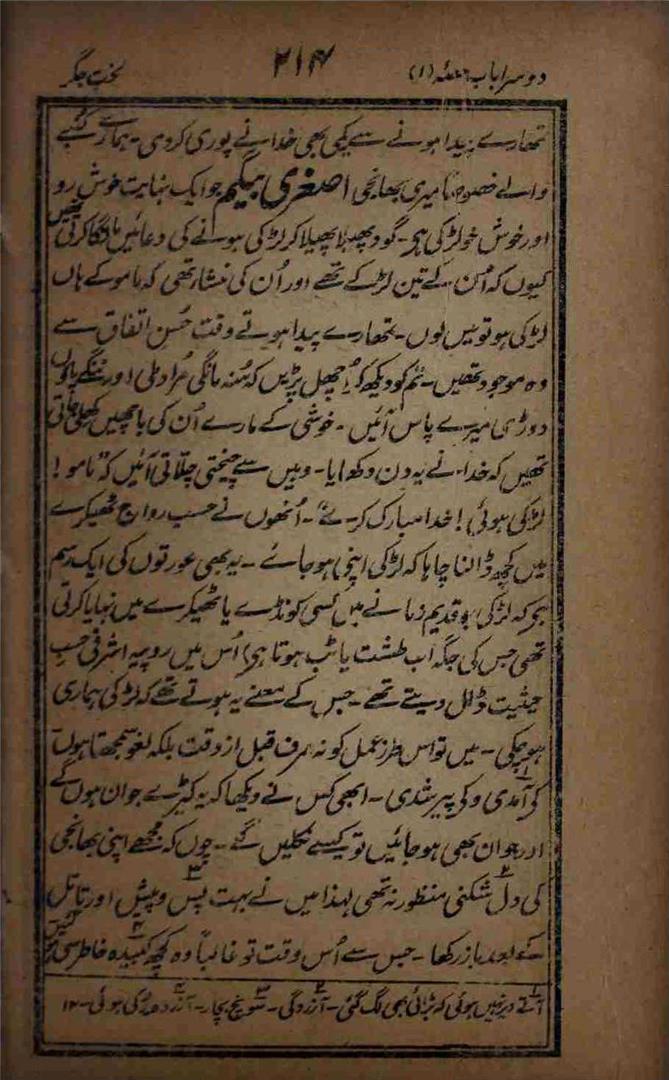 دوسرا باب (۱)
۲۱۴
لخت جگر
تمھارے پیدا ہونے سے یہ کمی بھی خدا نے پوری کر دی۔ ہمارے کنبے
والے خصوصاً میری بھانجی اصغری بیگم جو ایک نہایت خوش رو
اور خوش خو لڑکی ہی۔ گود پھیلا پھیلا کر لڑکی ہونے کی دعائیں مانگا کرتی تھیں
کیوں کہ اُن کے تین لڑکے تھے اور اُن کی منشا تھی کہ ماموں کے ہاں
لڑکی ہو تو میں لوں۔ تمھارے پیدا ہوتے وقت حُسن اتفاق سے
وہ موجود تھیں۔ تم کو دیکھ کر اُچھل پڑیں کہ مُنہ مانگی مُراد ملی اور ننگے پاؤں
دوڑی میرے پاس آئیں۔ خوشی کے مارے اُن کی باچھیں کھلی جاتی
تھیں کہ خدا نے یہ دن دکھایا۔ وہیں سے چیختی چلّاتی آئیں کہ "ماموں!
لڑکی ہوئی! خدا مبارک کرے"۔ اُنھوں نے حسب رواج ٹھیکرے
میں کچھ ڈالنا چاہا کہ لڑکی اپنی ہو جائے۔ یہ بھی عورتوں کی ایک رسم
ہی کہ لڑکی کو قدیم زمانے میں کسی کونڈے یا ٹھیکرے میں نہلایا کرتی
تھی جس کی جگہ اب طشت یا ٹب ہوتا ہی) اُس میں روپیہ اشرفی حسب
حیثیت ڈال دیتے تھے۔ جس کے معنے یہ ہوتے تھے کہ لڑکی ہماری
ہو چکی۔ میں تو اس طرز عمل کو نہ صرف قبل از وقت بلکہ لغو سمجھتا ہوں
کی آمدی و کی پیر شدی۔ ابھی کس نے دیکھا کہ یہ کیڑے جوان ہوں گے
اور جوان بھی ہو جائیں تو کیسے نکلیں گے۔ چوں کہ مجھے اپنی بھانجی
کی دل شکنی منظور نہ تھی لہذا میں نے بہت پس و پیش اور تامّل
کے بعد باز رکھا۔ جس سے اُس وقت تو غالباً وہ کچھ کبیدہ خاطر سی
۱ آتے دیر نہیں ہوئی کہ بُرائی بھی لگ گئی۔ ۲ آزردگی۔ ۳ سوچ بچار۔ ۴ آزردہ ہوئی۔ ۱۲